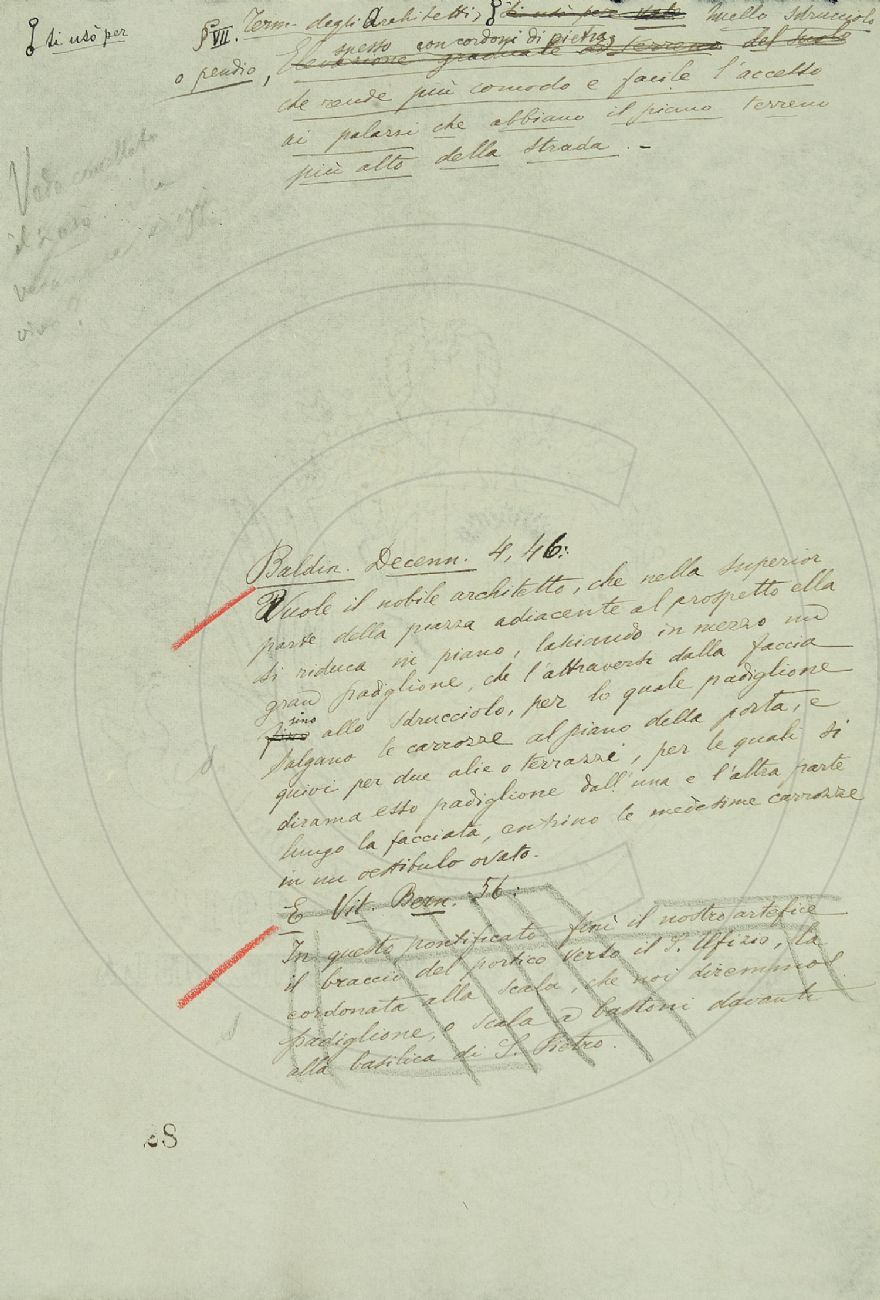 si usò per
§ VII. Term. degli Architetti, si usò per Quello sdrucciolo
o pendio, spesso con cordoni di pietra,
Elevazione graduale del suolo
che rende più comodo e facile l'accesso
ai palazzi che abbiano il piano terreno
più alto della strada. -
Vada cancellato
Baldin. Decenn. 4, 46:
Vuole il nobile architetto, che nella superior
parte della piazza adiacente al prospetto ella
si riduca in piano, lasciando in mezzo un
gran padiglione, che l'attraversi dalla faccia
sino allo sdrucciolo, per lo quale padiglione
salgano le carrozze al piano della porta, e
quivi per due alie o terrazzi, per le quali si
dirama esso padiglione dall'una e l'altra parte
lungo la facciata, entrino le medesime carrozze
in un vestibulo ovato.
E Vit. Bern. 56:
In questo pontificato finì il nostro artefice
il braccio del portico verso il S. Ufizio, la
cordonata alla scala, che noi diremmo
padiglione, o scala a bastoni davanti
alla basilica di S. Pietro.